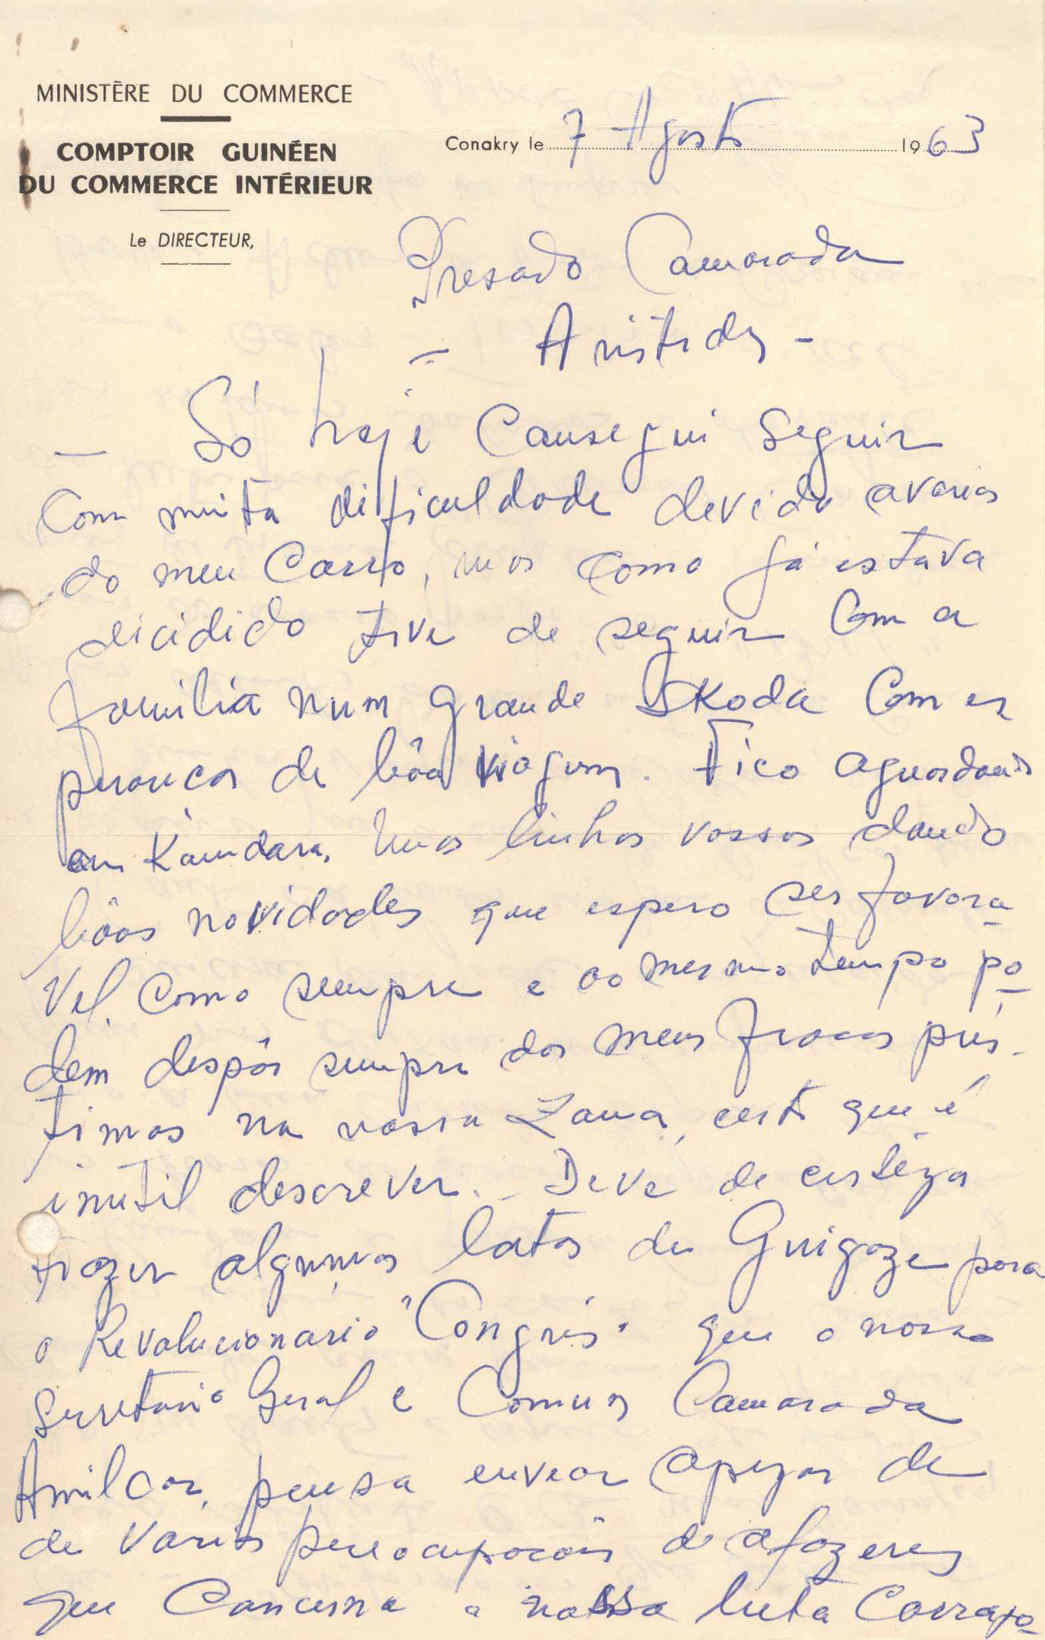 MINISTÈRE DU COMMERCE
COMPTOIR GUINÉEN
DU COMMERCE INTÉRIEUR
Le DIRECTEUR,
Conakry le 7 Agosto 1963
Presado Camarada
= Aristides -
— Só hoje consegui seguir
com muita dificuldade devido avarias
do meu Carro, mas como já estava
dicidido tive de seguir com a
familia num grande Skoda com es
perancas de bôa viagem. Fico aguardando
em Kamdara, umas linhas vossas dando
bôas novidades que espero ser favora
vel, como sempre e ao mesmo tempo po
dem despôr sempre dos meus fracos prés-
timos na nossa Zona, certo que é
inutil descrever. Deve de certêza
trazer algumas latas de Guigoze para
o Revolucionario "Congrés" que o nosso
Secretario Geral e comum Camarada
Amilcar, pensa enviar apezar de
de varias preocupacões de afazeres
que concerne a nossa luta Corrajo